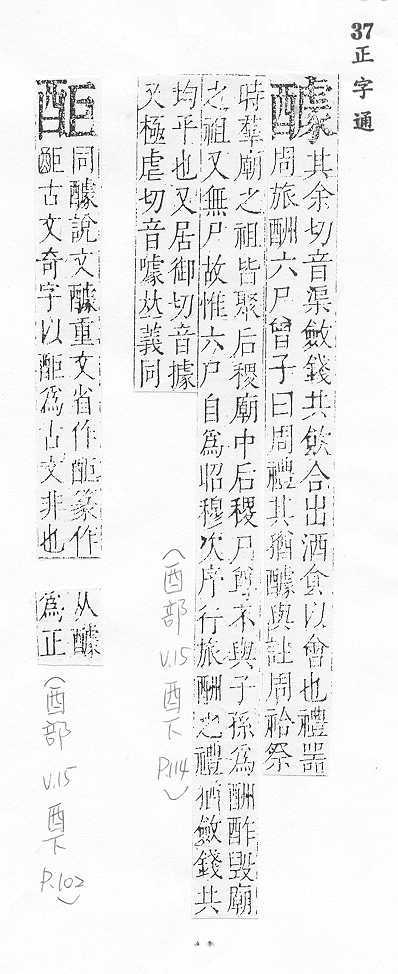 37正字通
醵
其余切音渠斂錢共飲合出酒食以會也禮器
周旅酬六尸曾子曰周禮其猶醵與註周祫祭
時羣廟之祖皆聚后稷廟中后稷尸尊不與子孫爲酬酢毀廟
之祖又無尸故惟六尸自爲昭穆次序行旅酬之禮猶斂錢共
均平也又居御切音據
又極虐切音噱𠀤義同
(酉部 V.15 酉下 P.114)
酠
同醵說文醵重文省作酠篆作
古文奇字以酠爲古文非也
从醵
爲正
(酉部 V.15 酉下 P.102)